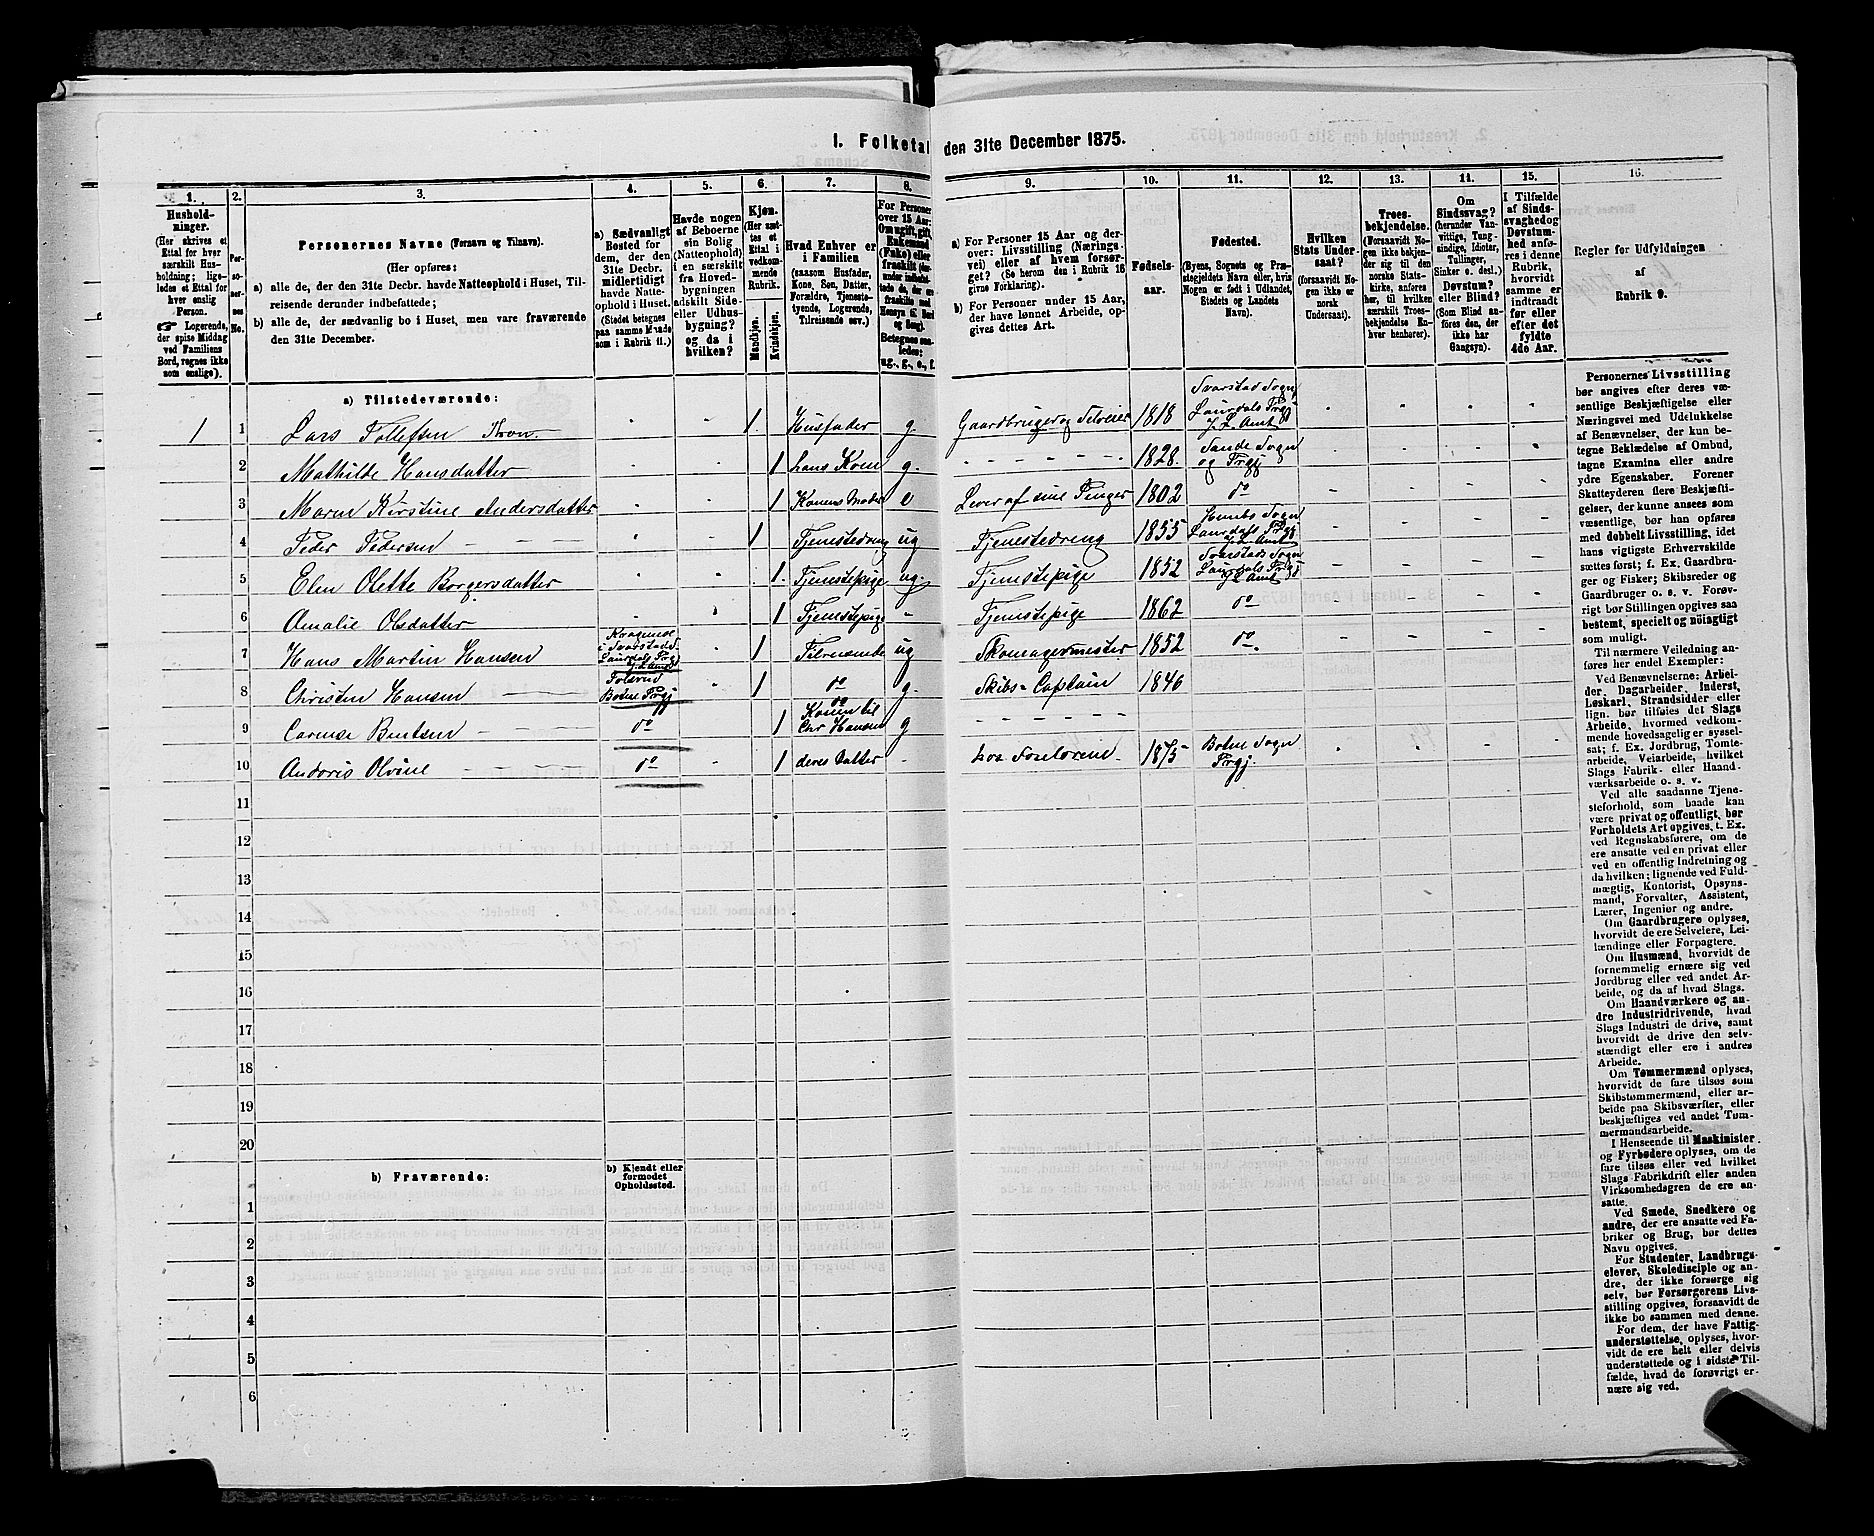 I. Folketal den 31te December 1875.
1. 2. 3. 4. 5. 6. 7. 8. 9. 10. 11. 12. 13. 14. 15. 16.
Hushold-
ninger.
(Her skrives et
Ettal for hver
særskilt Hus-
holdning; lige-
ledes et Ettal for
hver enslig
Person.
☞ Logerende,
der spise Middag
ved Familiens
Bord, regnes ikke
som enslige).
Per-
so-
ner-
nes
No.
Personernes Navne (Fornavn og Tilnavn).
(Her opføres:
a) alle de, der den 31te Decbr. havde Natteophold i Huset, Til-
reisende derunder indbefattede;
b) alle de, der sædvanlig bo i Huset, men vare fraværende
den 31te December.
a) Sædvanligt
Bosted for
dem, der den
31te Decbr.
midlertidigt
havde Natte-
ophold i Huset.
(Stedet betegnes
paa samme Maade
som i Rubrik 11.)
Havde nogen
af Beboerne
sin Bolig
(Natteophold)
i en særskilt
fra Hoved-
bygningen
adskilt Side-
eller Udhus-
bygning?
og da i
hvilken?
Kjøn.
(Her sæt-
tes et
Ettal i
vedkom-
mende
Rubrik.
Mandkjøn.
Kvindekjøn.
Hvad Enhver er
i Familien
(saasom Husfader,
Kone, Søn, Datter,
Forældre, Tjeneste-
tyende, Logerende,
Tilreisende osv.)
For Personer
over 15 Aar:
Om ugift, gift,
Enkemand
(Enke) eller
fraskilt
Betegnes saa-
ledes:
ug., g., e., f.
a) For Personer 15 Aar og der-
over: Livsstilling (Nærings-
vei) eller af hvem forsør-
get? (Se herom den i Rubrik 16
givne Forklaring).
b) For Personer under 15 Aar,
der have lønnet Arbeide, op-
gives dettes Art.
Fødsels-
aar.
Fødested.
(Byens, Sognets og Præ-
stegjeldets Navn eller, hvis
Nogen er født i Udlandet,
Stedets og Landets
Navn).
Hvilken
Stats Under-
saat?
(forsaavidt No-
gen ikke er
norsk
Undersaat).
Troes-
bekjendelse.
(Forsaavidt No-
gen ikke bekjen-
der sig til den
norske Stats-
kirke, anføres
her, til hvilken
særskilt Troes-
bekjendelse En-
hver henhører).
Om
Sindssvag?
(herunder Van-
vittige, Tung-
sindige, Idioter,
Tullinger,
Sinker o. desl.)
Døvstum?
eller Blind?
(Som Blind an-
føres den, der
ikke har
Gangsyn).
I Tilfælde
af Sinds-
svaghed og
Døvstum-
hed anfø-
res i denne
Rubrik,
hvorvidt
samme er
indtraadt
før eller
efter det
fyldte
4de Aar.
Regler for Udfyldningen
af
Rubrik 9.
a) Tilstedeværende:
1 1 Lars Tollefsen Kron 1. Husfader g. Gaardbruger og Selveier 1818 Svarstad Sogn Laurdals Prgj J. L. Amt
2 Mathilde Hansdatter 1 hans Kone g. 1828. Sande Sogn og Prgj
3 Maren Kirstine Andersdatter 1 Konens Moder e Lever af sine Penger 1802 do
4 Peder Pedersen 1 Tjenestedreng ug Tjenestedreng 1855 Hembs Sogn Laurdals Prgj J. L. Amt
5 Elen Olette Borgersdatter 1. Tjenestepige ug. Tjenestepige 1852 Svarstads Sogn Laurdals Prgj J. L. Amt
6 Amalie Olsdatter 1 Tjenestepige - Tjenestepige 1862 do
7 Hans Martin Hansen i Svarstad S. Laurdals Prgj J. L. Amt 1 ug Skomagermester 1852 do.
8 Christen Hansen Botne Prgj 1 do g. Skibs-Captain 1846
9 Carense Bentsen do 1 Konen til Chr Hansen g
10 Andoris Olvine do 1 deres Datter hos Foreldrene. 1875 Botne Sogn Prgj.
11
12
13
14
15
16
17
18
19
20
b) Fraværende:
b) Kjendt eller
formodet
Opholdssted.
1
2
3
4
5
6
Personernes Livsstilling
bør angives efter deres væ-
sentlige Beskjæftigelse eller
Næringsvei med Udelukkelse
af Benævnelser, der kun be-
tegne Beklædelse af Ombud,
tagne Examina eller andre
ydre Egenskaber. Forener
Skatteyderen flere Beskjæfti-
gelser, der kunne ansees som
væsentlige, bør han opføres
med dobbelt Livsstilling, idet
hans vigtigste Erhvervskilde
sættes først; f. Ex. Gaardbru-
ger og Fisker; Skibsreder og
Gaardbruger o. s. v. Forøv-
rigt bør Stillingen opgives saa
bestemt, specielt og nøiagtigt
som muligt.
Til nærmere Veiledning an-
føres her endel Exempler:
Ved Benævnelserne: Arbei-
der, Dagarbeider, Inderst,
Løskarl, Strandsidder eller
lign. bør tilføies det Slags
Arbeide, hvormed vedkom-
mende hovedsagelig er syssel-
sat; f. Ex. Jordbrug, Tomte-
arbeide, Veiarbeide, hvilket
Slags Fabrik- eller Haand-
værksarbeide o. s. v.
Ved alle saadanne Tjene-
steforhold, som baade kan
være privat og offentligt, bør
Forholdets Art opgives, t. Ex.
ved Regnskabsførere, om de
ere ansatte ved en privat eller
ved en offentlig Indretning og
da hvilken; lignende ved Fuld-
mægtig, Kontorist, Opsyns-
mand, Forvalter, Assistent,
Lærer, Ingeniør og andre.
Om Gaardbrugere oplyses,
hvorvidt de ere Selveiere, Lei-
lændinge eller Forpagtere.
Om Husmænd, hvorvidt de
fornemmelig ernære sig ved
Jordbrug eller ved andet Ar-
beide, og da af hvad Slags.
Om Haandværkere og an-
dre Industridrivende, hvad
Slags Industri de drive, samt
hvorvidt de drive den selv-
stændigt eller ere i andres
Arbeide.
Om Tømmermænd oplyses,
hvorvidt de fare tilsøs som
Skibstømmermænd, eller ar-
beide paa Skibsværfter, eller
beskjæftiges ved andet Tøm-
mermandsarbeide.
I Henseende til Maskinister
og Fyrbødere oplyses, om de
fare tilsøs eller ved hvilket
Slags Fabrikdrift eller anden
Virksomhedsgren de ere an-
satte.
Ved Smede, Snedkere og
andre, der ere ansatte ved Fa-
briker og Brug, bør dettes
Navn opgives.
For Studenter, Landbrugs-
elever, Skoledisciple og an-
dre, der ikke forsørge sig
selv, bør Forsørgerens Livs-
stilling opgives, forsaavidt de
ikke bo sammen med denne.
For dem, der have Fattig-
understøttelse, oplyses, hvor-
vidt de ere helt eller delvis
understøttede og i sidste Til-
fælde, hvad de forøvrigt er-
nære sig ved.